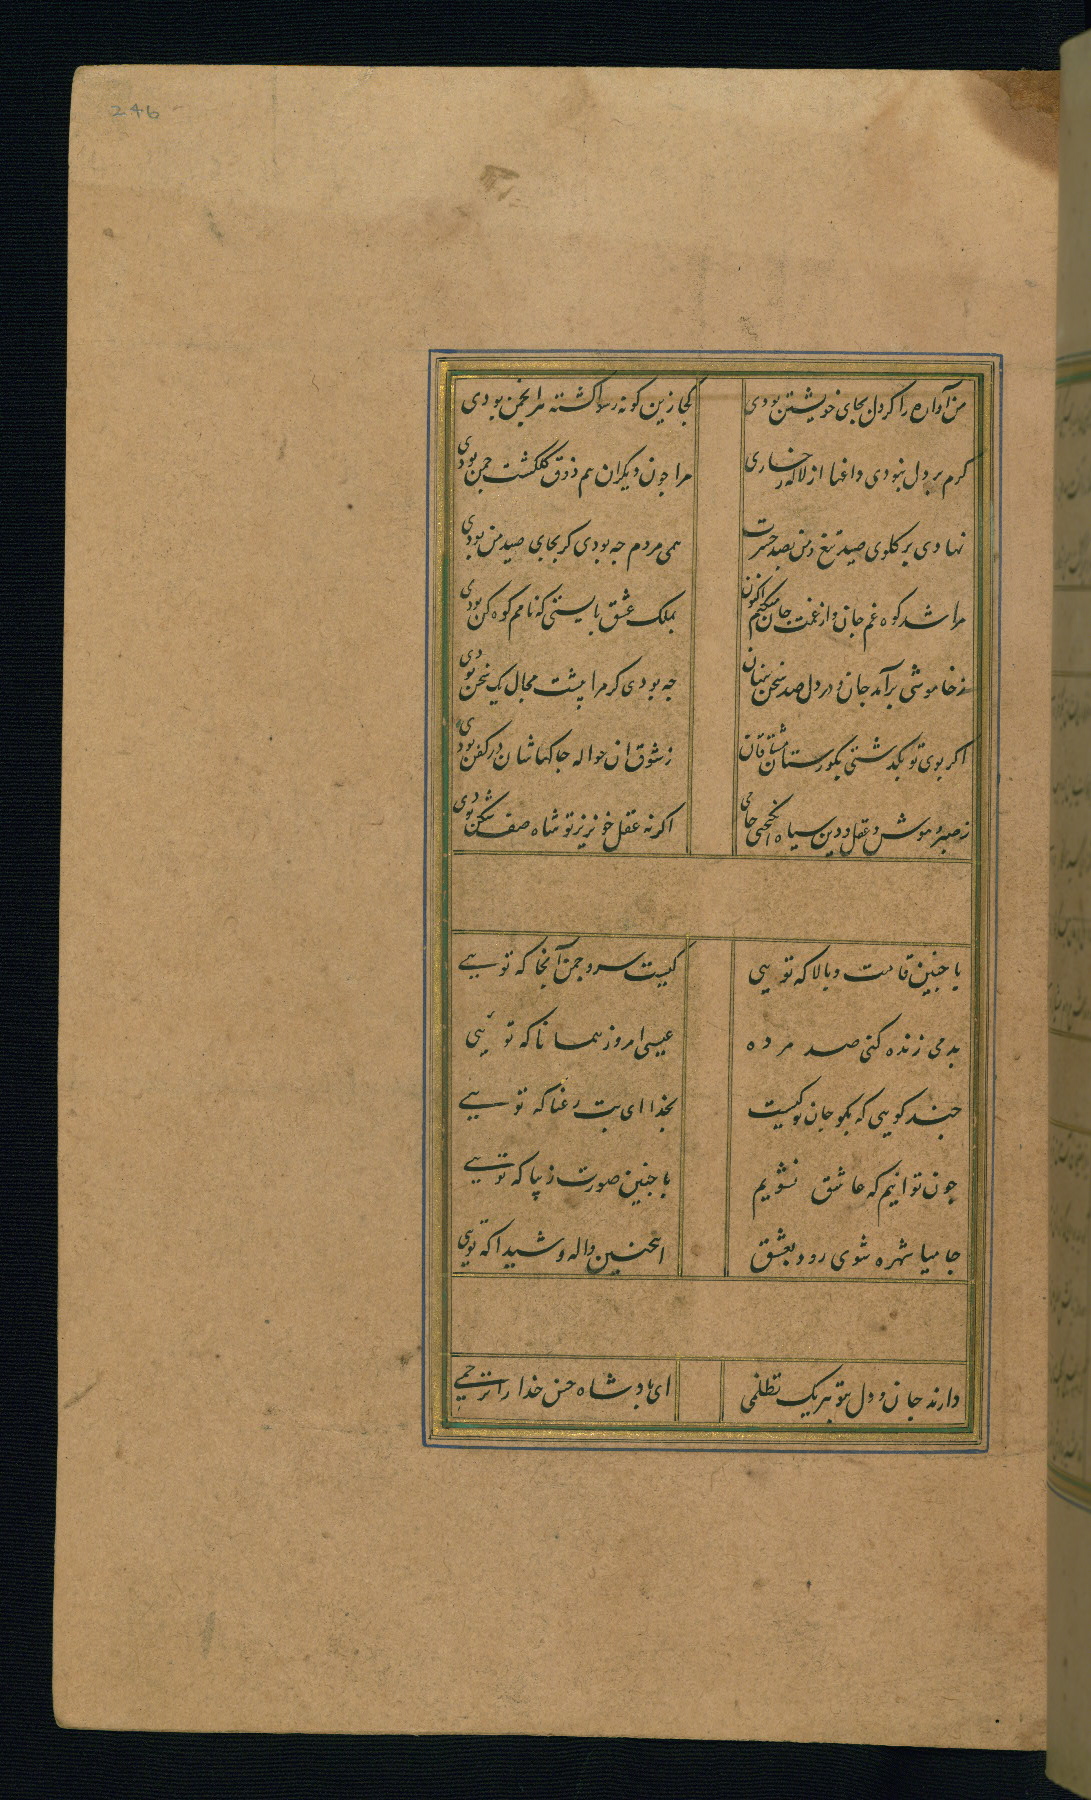 246
من آواره را کر دل بجای خویشتن بودی کجا زین کونه رسوا کشته هر انجمن بودی
کرم بر دل نبودی داغها از لاله رخساری مرا چون دیکران هم ذوق کلکشت چمن بودی
نهادی بر کلوی صید تیغ و من بصد حسرت همی مردم چه بودی کر بجای صید من بودی
مرا شد کوه غم جان و از غمت جان میکنم اکنون بملک عشق بایستی که نامم کوه کن بودی
ز خاموشی برآمد جان و در دل صد سخن پنهان چه بودی کر مرا پیشت مجال یک سخن بودی
اکر بوی تو بکذشتی بکورستان مشتاقان ز شوق ان حواله چاکهاشان در کفن بودی
ز صبر و هوش و عقل و دین سپاه انکیختی جامی اکر نه عقل خونریز تو شاه صف شکن بودی
با چنین قامت و بالا که تویی کیست سرو چمن آنجا که تویی
بدمی زنده کنی صد مرده عیسی امروز همانا که تویی
چند کویی که بکو جان تو کیست بخدا ای بت رعنا که تویی
چون توانیم که عاشق نشویم با چنین صورت زیبا که تویی
جامیا شهره شوی زود بعشق اینچنین واله و شیدا که تویی
دارند جان و دل بتو هر یک تظلمی ای پادشاه حسن خدا را ترحمی